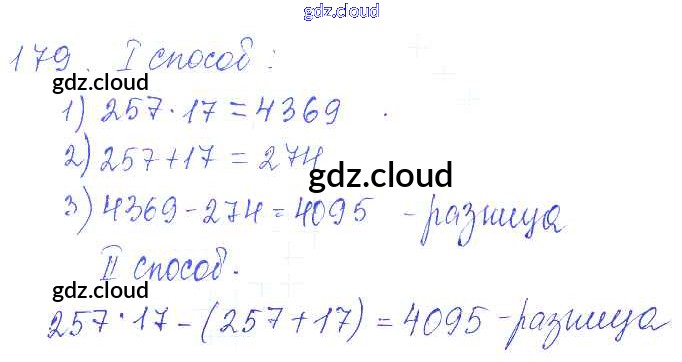 gdz.cloud
179. I способ:
gdz.cloud
1) 257·17=4369
2) 257+17=274
gdz.cloud
3) 4369-274=4095 -разница
II способ.
gdz.cloud
257·17-(257+17)=4095-разница
gdz.cloud